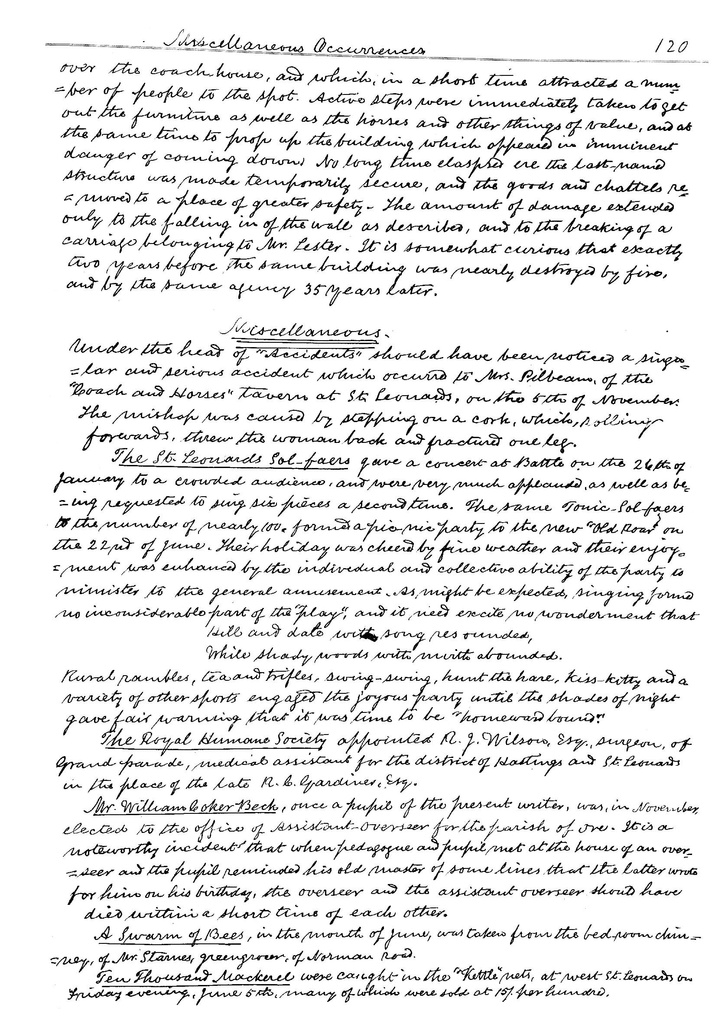 Miscellaneous Occurrences 120
over the coach house, and which, in a short time attracted a num-
=ber of people to the spot. Active steps were immediately taken to get
out the furniture as well as the horses and other things of value, and at
the same time to prop up the building which appeared in imminent
danger of coming down. No long time elaspsed ere the last-named
structure was made temporarily secure, and the goods and chattels re-
=moved to a place of greater safety. The amount of damage extended
only to the falling in of the wall as described, and to the breaking of a
carriage belonging to Mr. Lester. It is somewhat curious that exactly
two years before the same building was nearly destroyed by fire,
and by the same agency 35 years later.
Miscellaneous.
Under the head of "Accidents" should have been noticed a singu-
=lar and serious accident which occurred to Mrs. Pilbeam, of the
"Coach and Horses" tavern at St. Leonards, on the 5th of November.
The mishap was caused by stepping on a cork, which, rolling
forwards, threw the woman back and fractured one leg.
The St. Leonards Sol-faers gave a concert at Battle on the 26th of
January to a crowded audience, and were very much applauded, as well as be-
=ing requested to sing six pieces a second time. The same Tonic-Sol-faers
to the number of nearly 100, formed a pic-nic party to the new "Old Roar" on
the 22nd of June. Their holiday was cheerd by fine weather and their enjoy-
=ment was enhanced by the individual and collective ability of the party to
minister to the general amusement. As might be expected, singing formed
no inconsiderable part of the "play", and it need excite no wonderment that
Hill and dale with song resounded,
While shady woods with mirth abounded.
Rural rambles, tea and trifles, swing-swing, hunt the hare, kiss-kitty and a
variety of other sports engaged the joyous party until the shades of night
gave fair warning that it was time to be "homeward bound."
The Royal Humane Society appointed R. J. Wilson, Esq., surgeon, of
Grand parade, medical assistant for the district of Hastings and St. Leonards
in the place of the late R. C. Gardiner, Esq.
Mr. William Coker Beck, once a pupil of the present writer, was, in November,
elected to the office of Assistant-Overseer for the parish of Ore. It is a
noteworthy incident that when pedagogue and pupil met at the house of an over-
=seer and the pupil reminded his old master of some lines that the latter wrote
for him on his birthday, the overseer and the assistant overseer should have
died within a short time of each other.
A Swarm of Bees, in the month of June, was taken from the bed-room chim-
=ney, of Mr. Starnes, greengrocer, of Norman road.
Ten Thousand Mackerel were caught in the "Kettle" nets, at west St. Leonards on
Friday evening, June 5th, many of which were sold at 15/. per hundred.